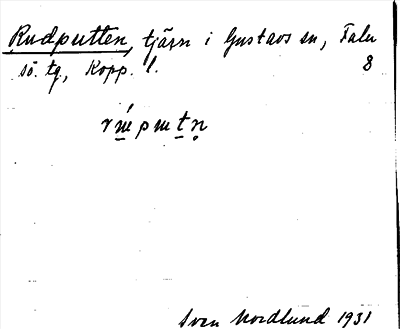 Rudputten, tjärn i Gustavs sn, Falu
sö. tg, Kopp. l. 8
rɯ̲́pɯt̲n̥
Sven Nordlund 1931